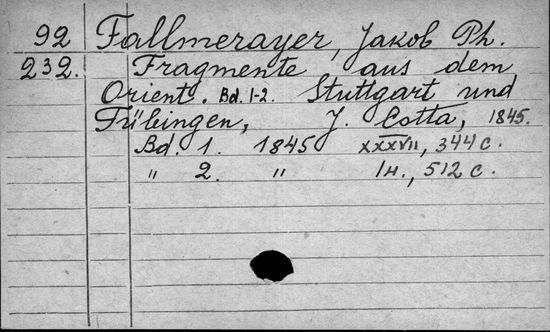 92 Fallmerayer, Jakob Ph.
232. Fragmente aus dem
Orient. Bd. 1-2. Stuttgart und
Tübingen, J. Cotta, 1845.
Bd. 1. 1845 XXXVII, 344 c.
" 2. " 1н., 512 c.